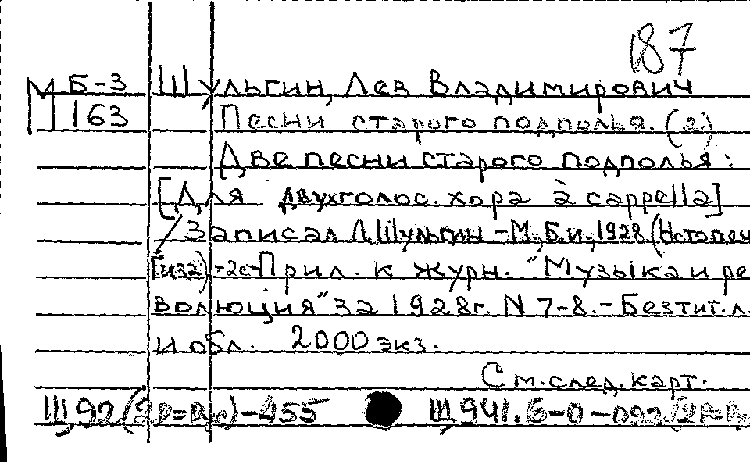 187
М Б-3 Шульгин, Лев Владимирович
163 Песни старого подполья. (2)
Две песни старого подполья:
[Для двухголос. хора à cappella]
Записал Л. Шульгин - М., Б.и., 1928 (Нотопеч
Гиза) -2с- Прил. к журн. "Музыка и ре
волюция" за 1928г. N 7-8. - Без тит. л.
и обл. 2000 экз.
См. след. карт.
Щ92 -455 Щ941.6-0-092